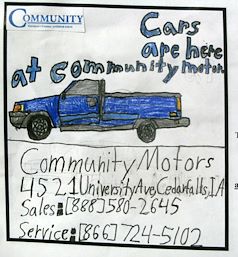 COMMUNITY
Cars
are here
at community motors
Community Motors
4521 University Ave, Cedarfalls, IA
Sales: [888] 580-2645
Service: [866] 724-5102